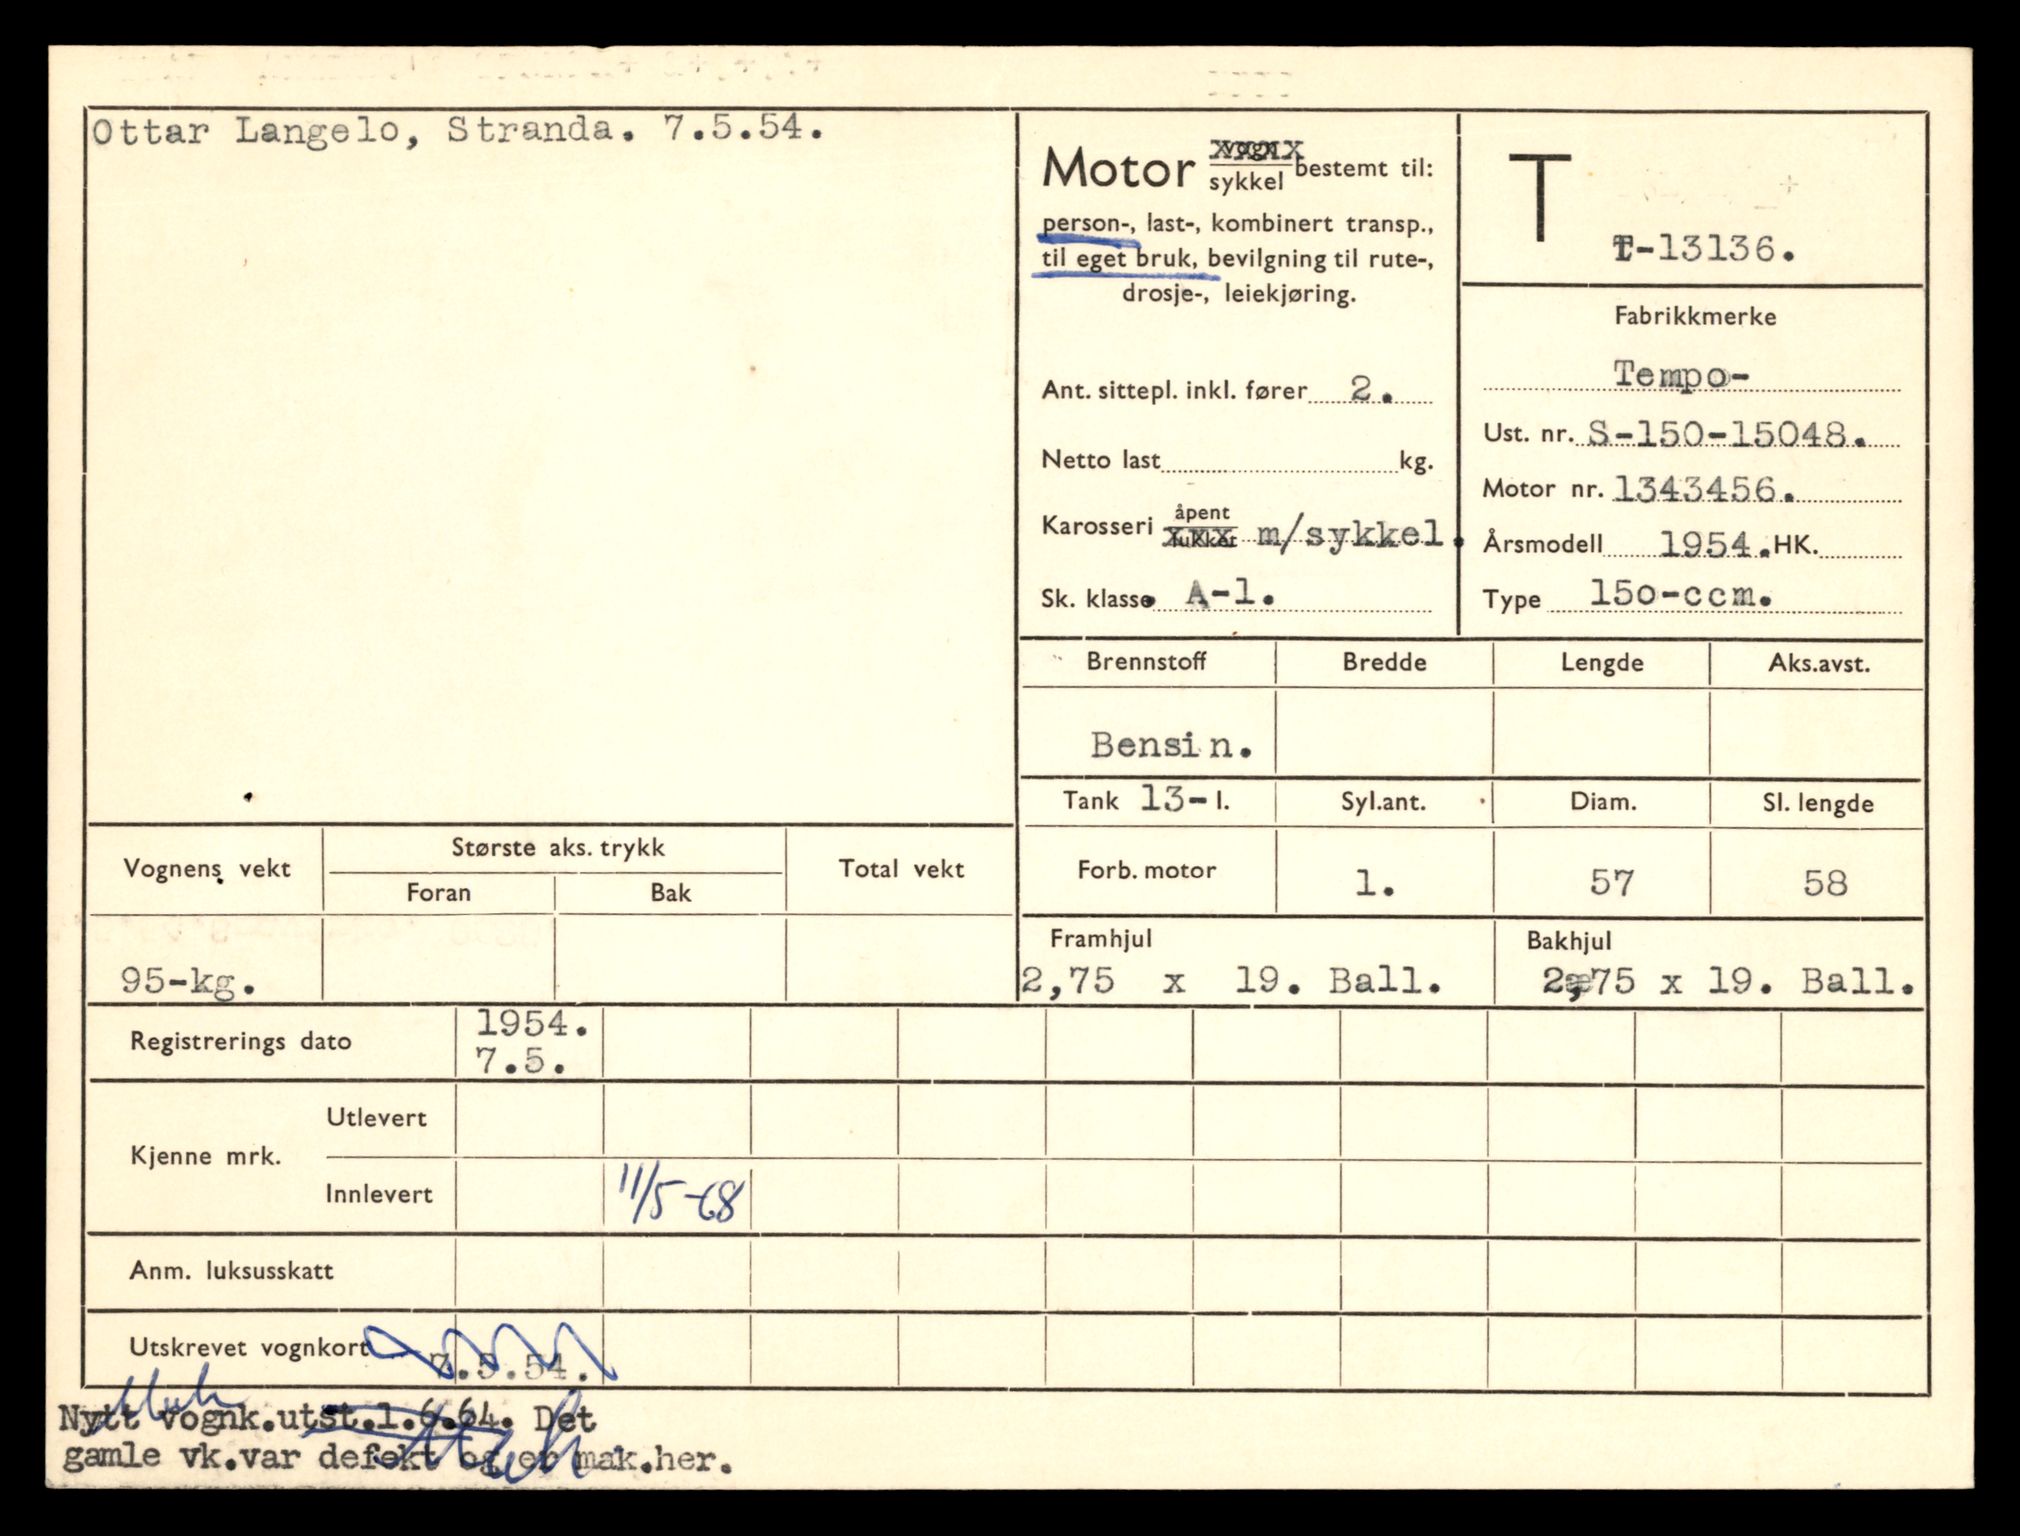 Ottar Langelo, Stranda. 7.5.54.
Motor vogn sykkel bestemt til:
person-, last-, kombinert transp.,
til eget bruk, bevilgning til rute-,
drosje-, leiekjøring.
Ant. sittepl. inkl. fører 2.
Netto last kg.
Karosseri åpent lukket m/sykkel.
Sk. klasse A-1.
T
T-13136.
Fabrikkmerke
Tempo-
Ust. nr. S-150-15048.
Motor nr. 1343456.
Årsmodell 1954. HK.
Type 15o-ccm.
Brennstoff Bredde Lengde Aks.avst.
Bensin.
Tank 13- l. Syl.ant. Diam. Sl. lengde
Forb. motor 1. 57 58
Vognens vekt Største aks. trykk Total vekt
Foran Bak
95-kg.
Framhjul Bakhjul
2,75 x 19. Ball. 2,75 x 19. Ball.
Registrerings dato 1954.
7.5.
Kjenne mrk. Utlevert
Innlevert 11/5-68
Anm. luksusskatt
Utskrevet vognkort 7.5.54.
Nytt vognk.utst.1.6.64. Det
gamle vk.var defekt og er mak.her.